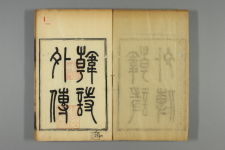 韓詩
外傳